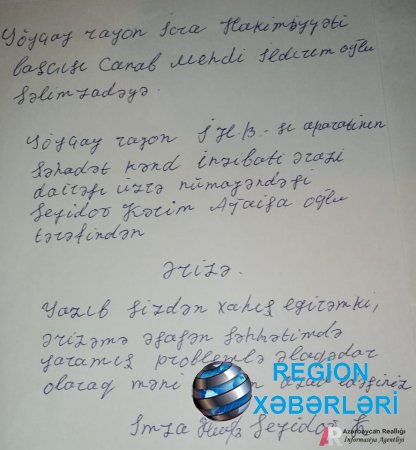 Göygöl rayon İcra Hakimiyyəti
başçısı Cənab Mehdi İldırım oğlu
Səlimzadəyə.
Göygöl rayon İHB-sı aparatının
Şəhadət kənd inzibati ərazi
dairəsi üzrə nümayəndəsi
Seyidov Kərim Ağaisa oğlu
tərəfindən
Ərizə.
Yazıb sizdən xahiş edirəmki,
ərizəmə əsasən səhhətimdə
yaranmış problemlə əlaqədar
olaraq məni azad edəsiniz
REGION
XƏBƏRLƏRİ
İmza Seyidov K.
Azərbaycan Reallığı
İnformasiya Agentliyi